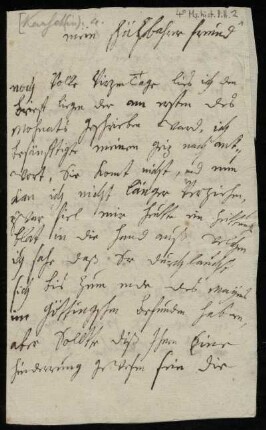 mein schäzbahrer freund
noch volle vierzen Tage lies ich den
brieff ligen der am ersten des
Monahts geschrieben ward, ich
besänftigte meinen geiz nach ant-
wort, Sie komt nicht, und nun
kan ich nicht länger verziehen,
zwar fiel mir heute ein zeitungs
blat in die hand aus welchem
ich sahe daß Sr Durchlaucht
sich bis zum ende des mayes
im Göttingschen befunden haben,
aber sollte dis Ihnen eine
hinderung gewesen sein die